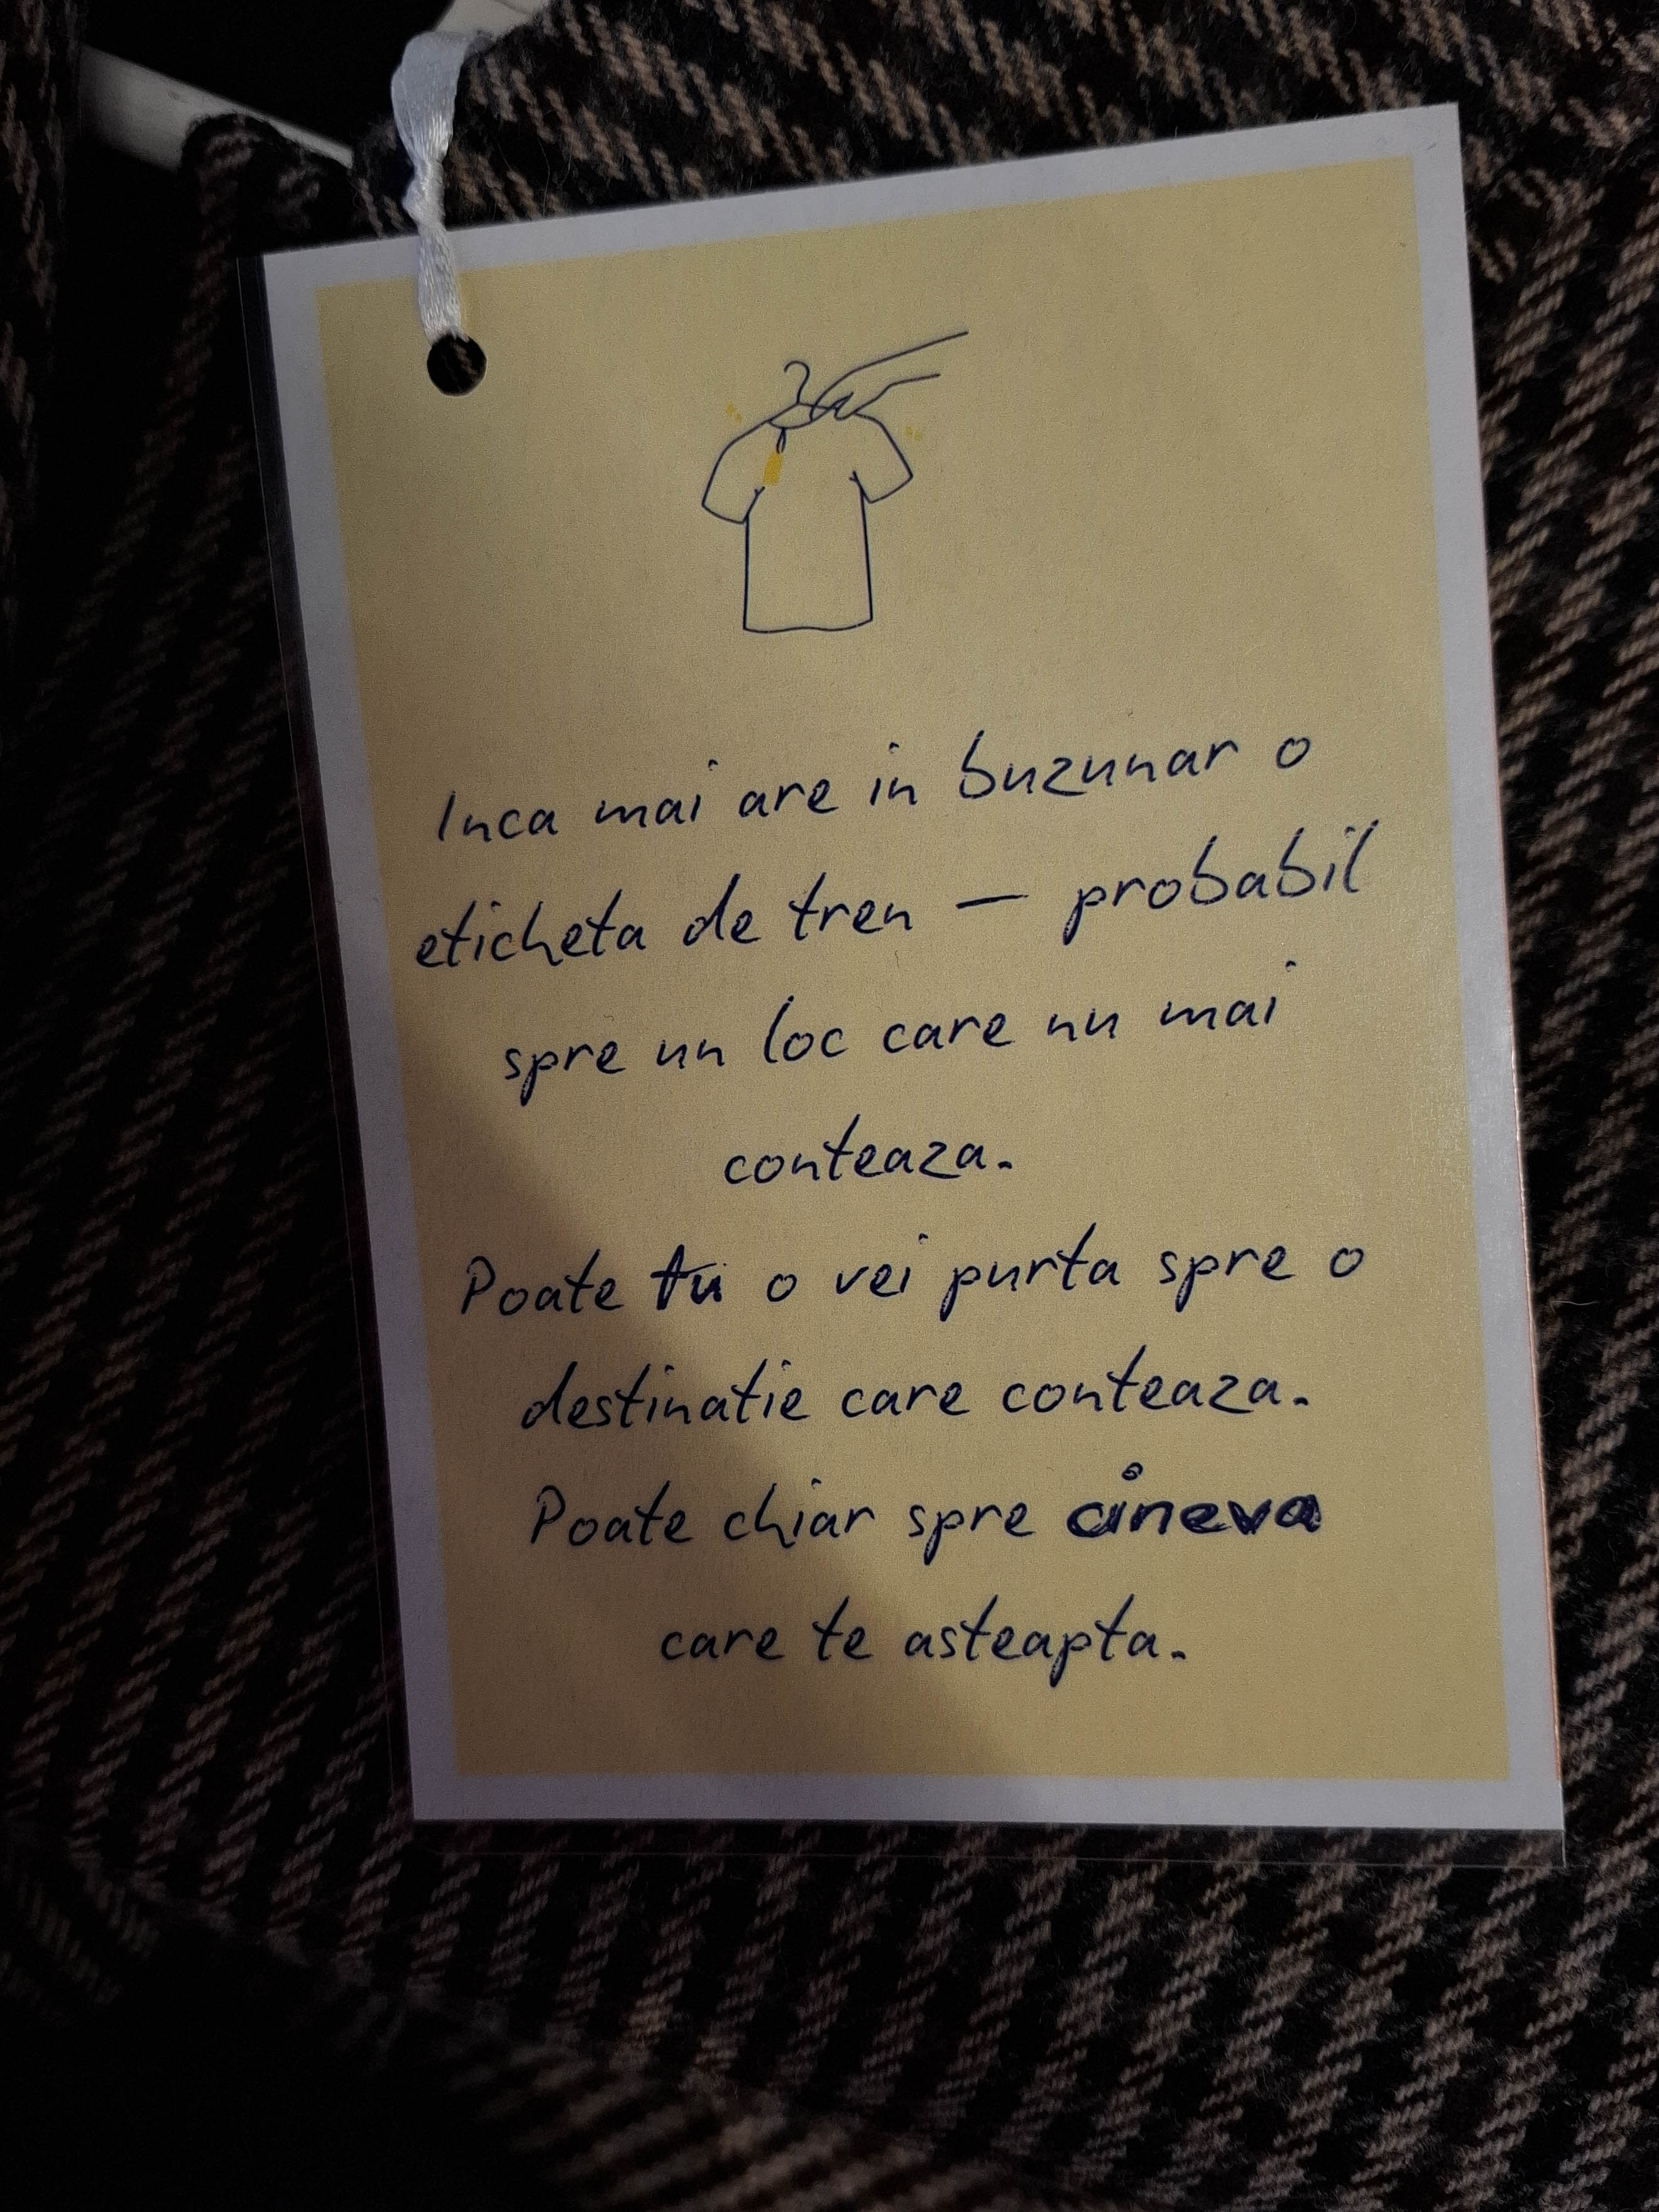 Inca mai are in buzunar o
eticheta de tren — probabil
spre un loc care nu mai
conteaza.
Poate tu o vei purta spre o
destinatie care conteaza.
Poate chiar spre cineva
care te asteapta.